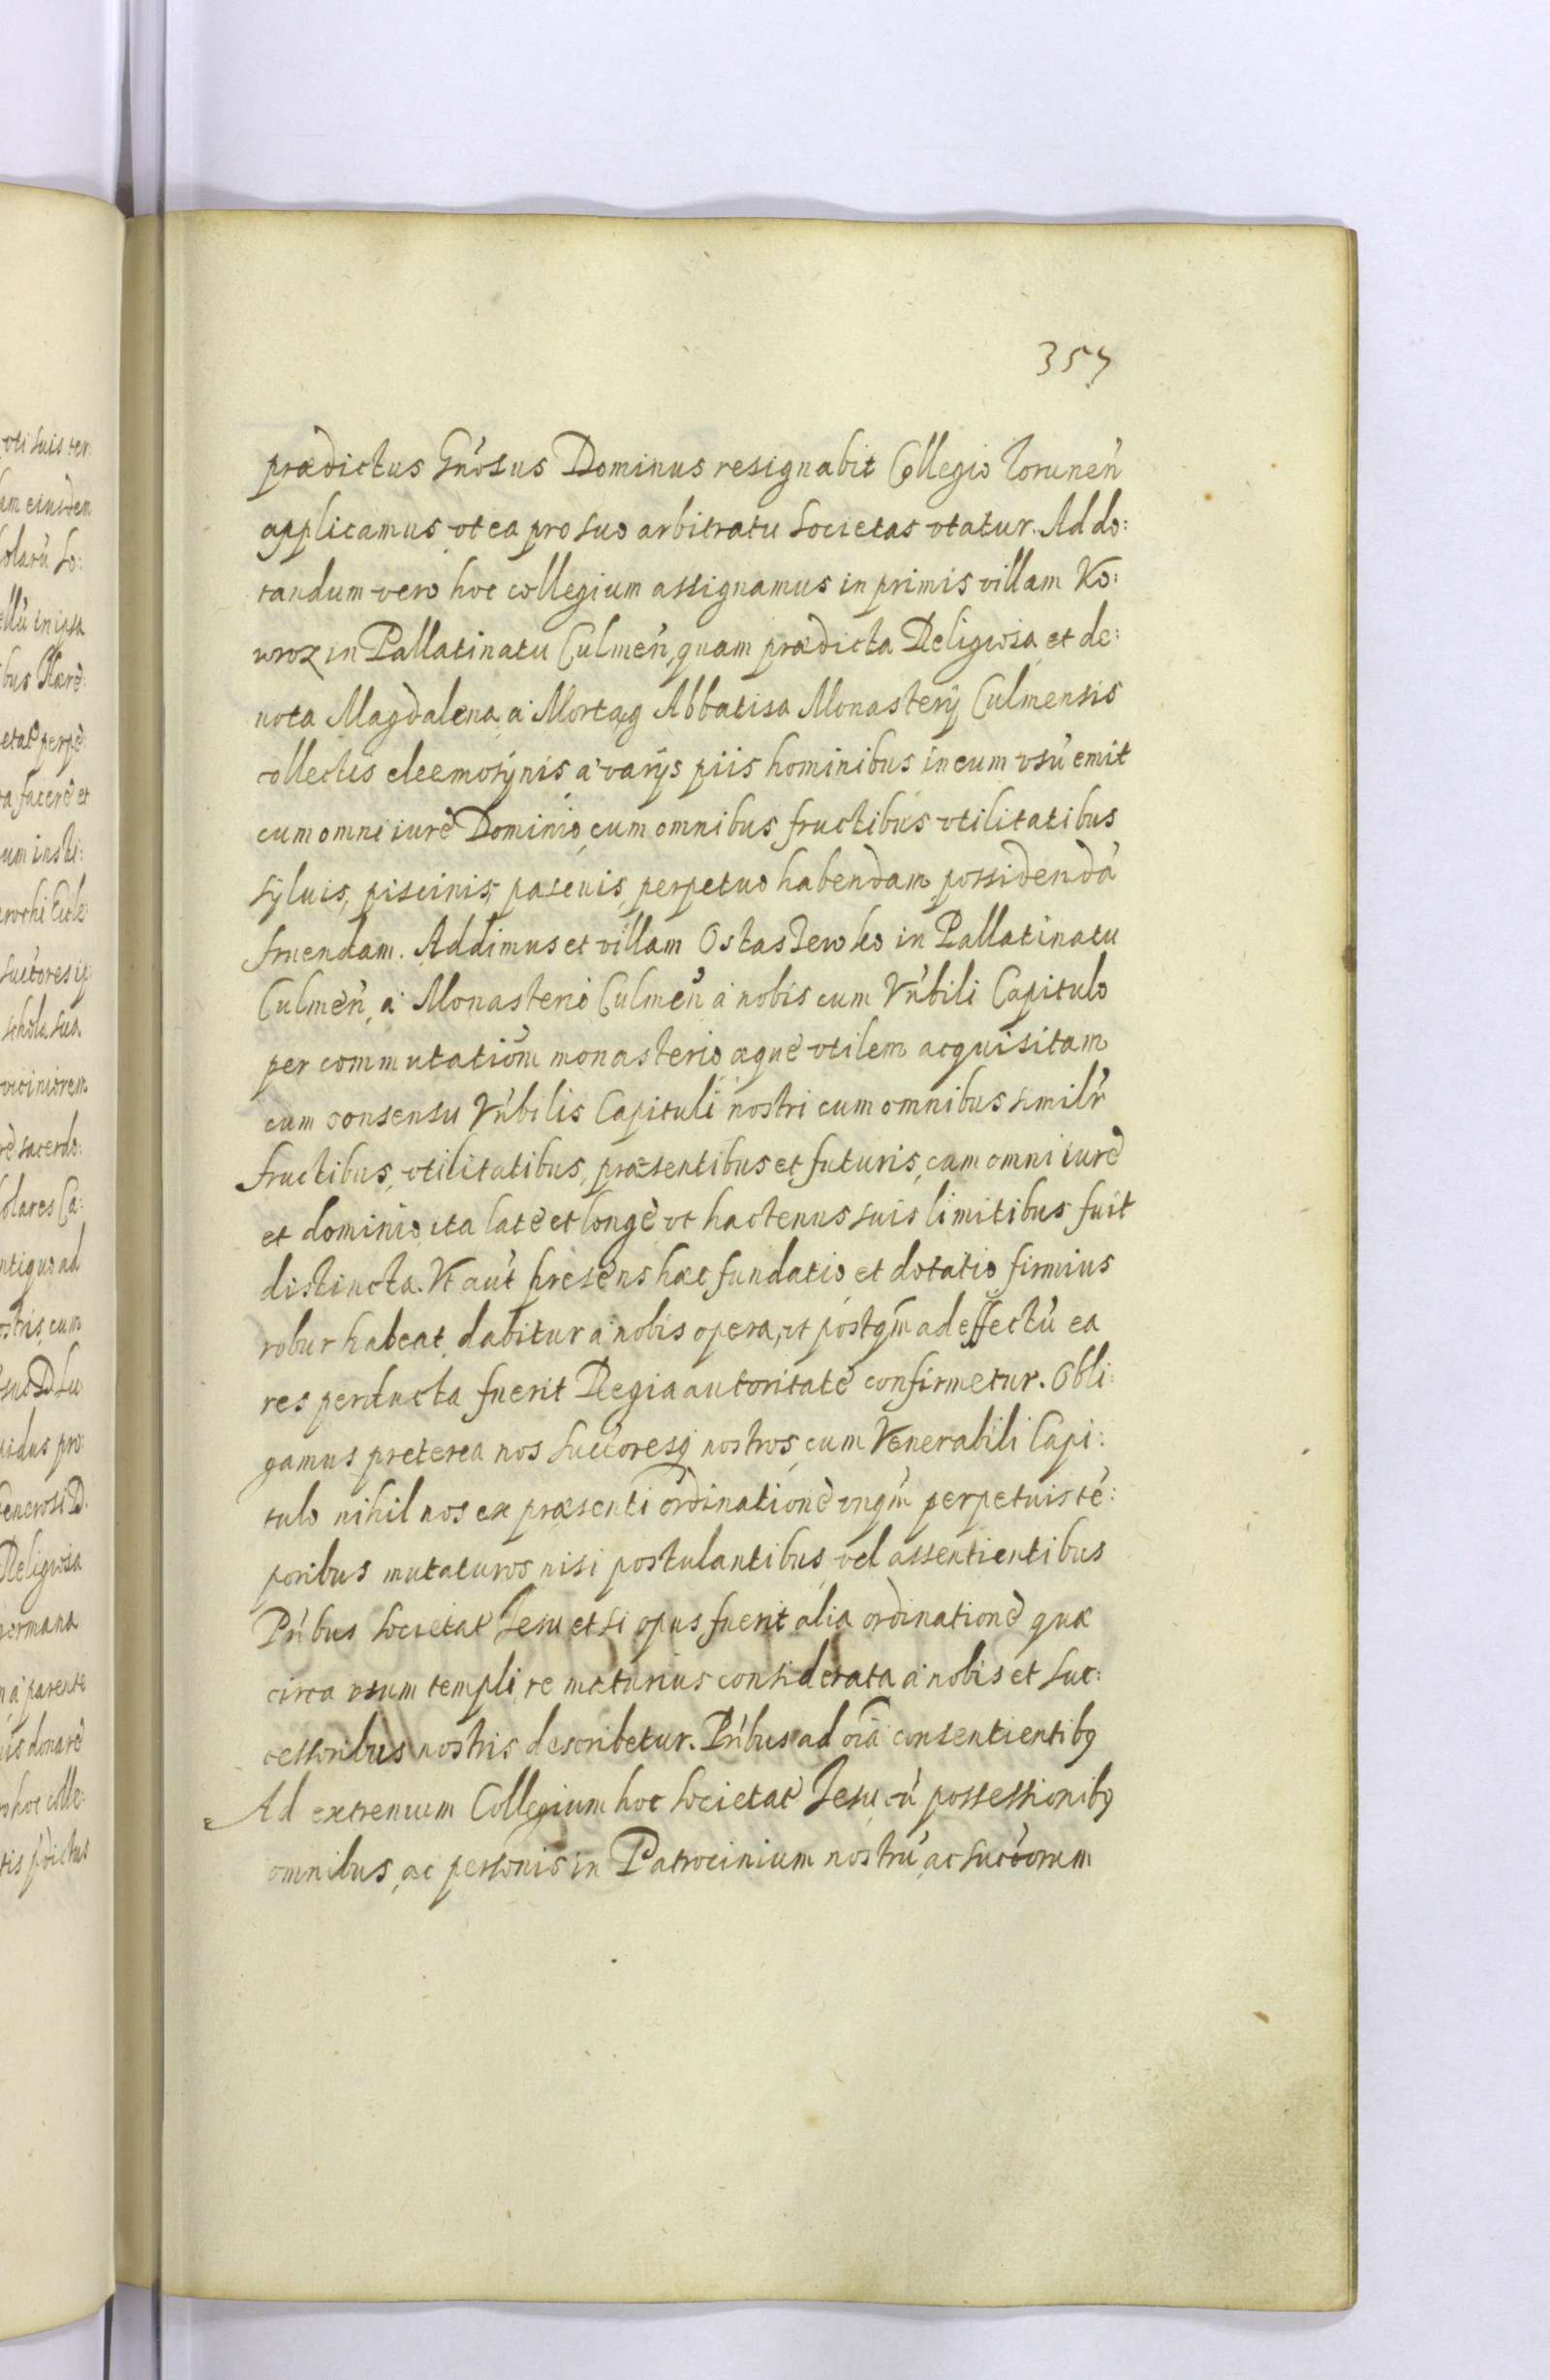 357
prædictus Gnósus Dominus resignabit Collegio Torunen̓
applicamus, vt ea pro suo arbitratu Societas vtatur. Ad do:
tandum vero hoc collegium assignamus in primis villam Ko:
wroz in Pallatinatu Culmen̓, quam prædicta Religiosa et de:
uota Magdalena à Mortæg Abbatisa Monasterÿ Culmensis
collectis eleemosÿnis à varÿs piis hominibus in eum vsu̓ emit
cum omni iurè Dominio, cum omnibus fructibus vtilitatibus
sÿluis, piscinis, pascuis, perpetuo habendam, possidenda̓
fruendam. Addimus et villam Ostaszewsko in Pallatinatu
Culmen̓, à Monasterio Culmen̓ à nobis cum Vn̓bili Capitulo
per commutatiōm monasterio æquè vtilem acquisitam
cum consensu Vn̓bilis Capituli nostri cum omnibus similr̓
fructibus, vtilitatibus, præsentibus et futuris, cum omni iurè
et dominio, ita latè et longè vt hactenus suis limitibus fuit
distincta. Vt au̓t presens hæc fundatio et dotatio firmius
robur habeat, dabitur à nobis opera, vt postqm̓ ad effectu̓ ea
res perducta fuerit Regia autoritatè confirmetur. Obli:
gamus preterea nos succoresq̓ nostros, cum Venerabili Capi:
tulo nihil nos ex præsenti ordinationè vnqm̓ perpetuis te̓:
poribus mutaturos, nisi postulantibus, vel assentientibus
Pr̓ibus Societat̓ Jesu et si opus fuerit alia ordinationè quæ
circa vsum templi, re maturius considerata à nobis et suc:
cessoribus nostris describetur. Pr̓ibus ad oīa consentientibꝰ
Ad extremum Collegium hoc Societat̓ Jesu cu̓ possessionibꝰ
omnibus, ac personis in Patrocinium nostru̓, ac succ̓orum